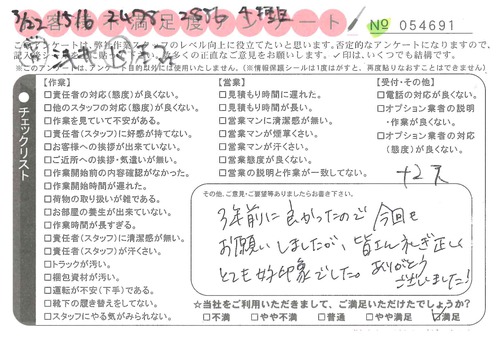 お客様不満足度アンケート
№ 054691
このアンケートは、弊社作業スタッフのレベル向上に役立てたいと思います。否定的なアンケートになりますので、
多くの正直なご意見をお願いします。✓印は、いくつでも結構です。
※このアンケートは、アンケート目的以外には使用いたしません。(※情報保護シールは1度はがすと、再度貼りなおすことはできません)
チェックリスト
【作業】
□責任者の対応(態度)が良くない。
□他のスタッフの対応(態度)が良くない。
□作業を見ていて不安がある。
□責任者(スタッフ)に好感が持てない。
□お客様への挨拶が出来ていない。
□ご近所への挨拶・気遣いが無い。
□作業開始前の内容確認がなかった。
□作業開始時間が遅れた。
□荷物の取り扱いが雑である。
□お部屋の養生が出来ていない。
□作業時間が長すぎる。
□責任者(スタッフ)に清潔感が無い。
□責任者(スタッフ)が汗くさい。
□トラックが汚い。
□梱包資材が汚い。
□運転が不安(下手)である。
□靴下の履き替えをしてない。
□スタッフにやる気がみられない。
【営業】
□見積もり時間に遅れた。
□見積もり時間が長い。
□営業マンに清潔感が無い。
□営業マンが煙草くさい。
□営業マンが汗くさい。
□営業態度が良くない。
□営業の説明と作業が一致してない。
【受付・その他】
□電話の対応が良くない。
□オプション業者の説明
・作業が良くない。
□オプション業者の対応
(態度)が良くない。
+2点
その他、ご意見・ご要望等ありましたらお書き下さい。
3年前に良かったので今回も
お願いしましたが、皆さんれいぎ正しく
とても好印象でした。ありがとう
ございました!
☆当社をご利用いただきまして、ご満足いただけたでしょうか?
□不満 □やや不満 □普通 □やや満足 ☑満足